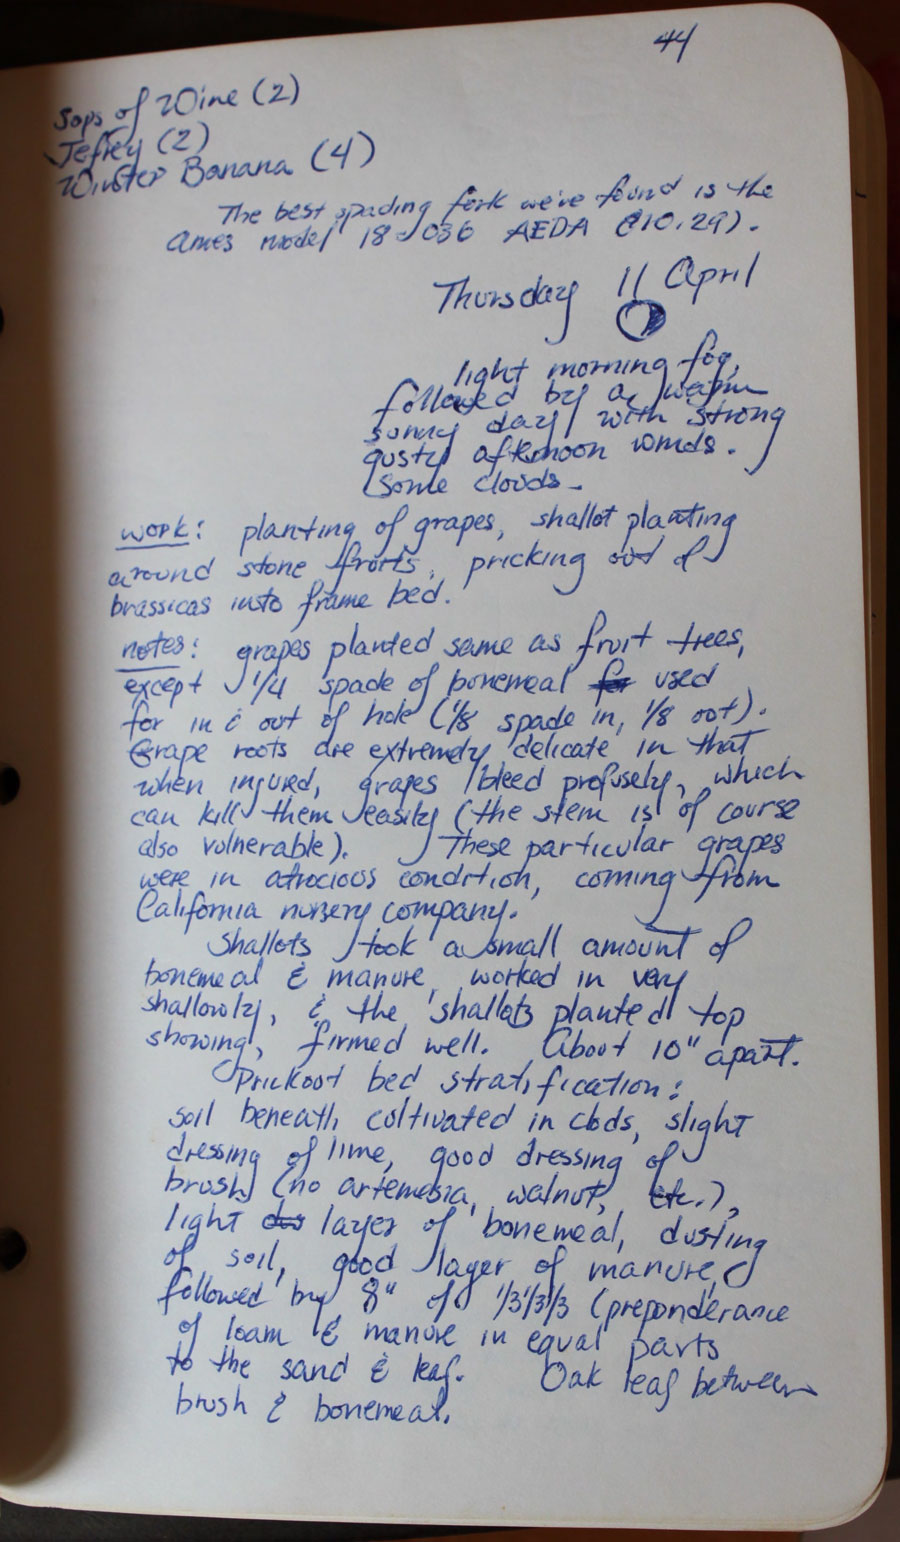 44
Sops of Wine (2)
Jefrey (2)
Winter Banana (4)
The best spading fork we've found is the
Ames model 18-036 AEDA (10.29).
Thursday 11 April
light morning fog,
followed by a warm
sunny day with strong
gusty afternoon winds.
Some clouds.
work: planting of grapes, shallot planting
around stone fruits, pricking out of
brassicas into frame bed.
notes: grapes planted same as fruit trees,
except 1/4 spade of bonemeal used
for in & out of hole (1/8 spade in, 1/8 out).
Grape roots are extremely delicate in that
when injured, grapes bleed profusely, which
can kill them easily (the stem is of course
also vulnerable). These particular grapes
were in atrocious condition, coming from
California nursery company.
Shallots took a small amount of
bonemeal & manure, worked in very
shallowly, & the shallots planted top
showing, firmed well. About 10" apart.
Prickout bed stratification:
soil beneath cultivated in clods, slight
dressing of lime, good dressing of
brush (no artemesia, walnut, etc.),
light layer of bonemeal, dusting
of soil, good layer of manure,
followed by 8" of 1/3 1/3 1/3 (preponderance
of loam & manure in equal parts
to the sand & leaf. Oak leaf between
brush & bonemeal.